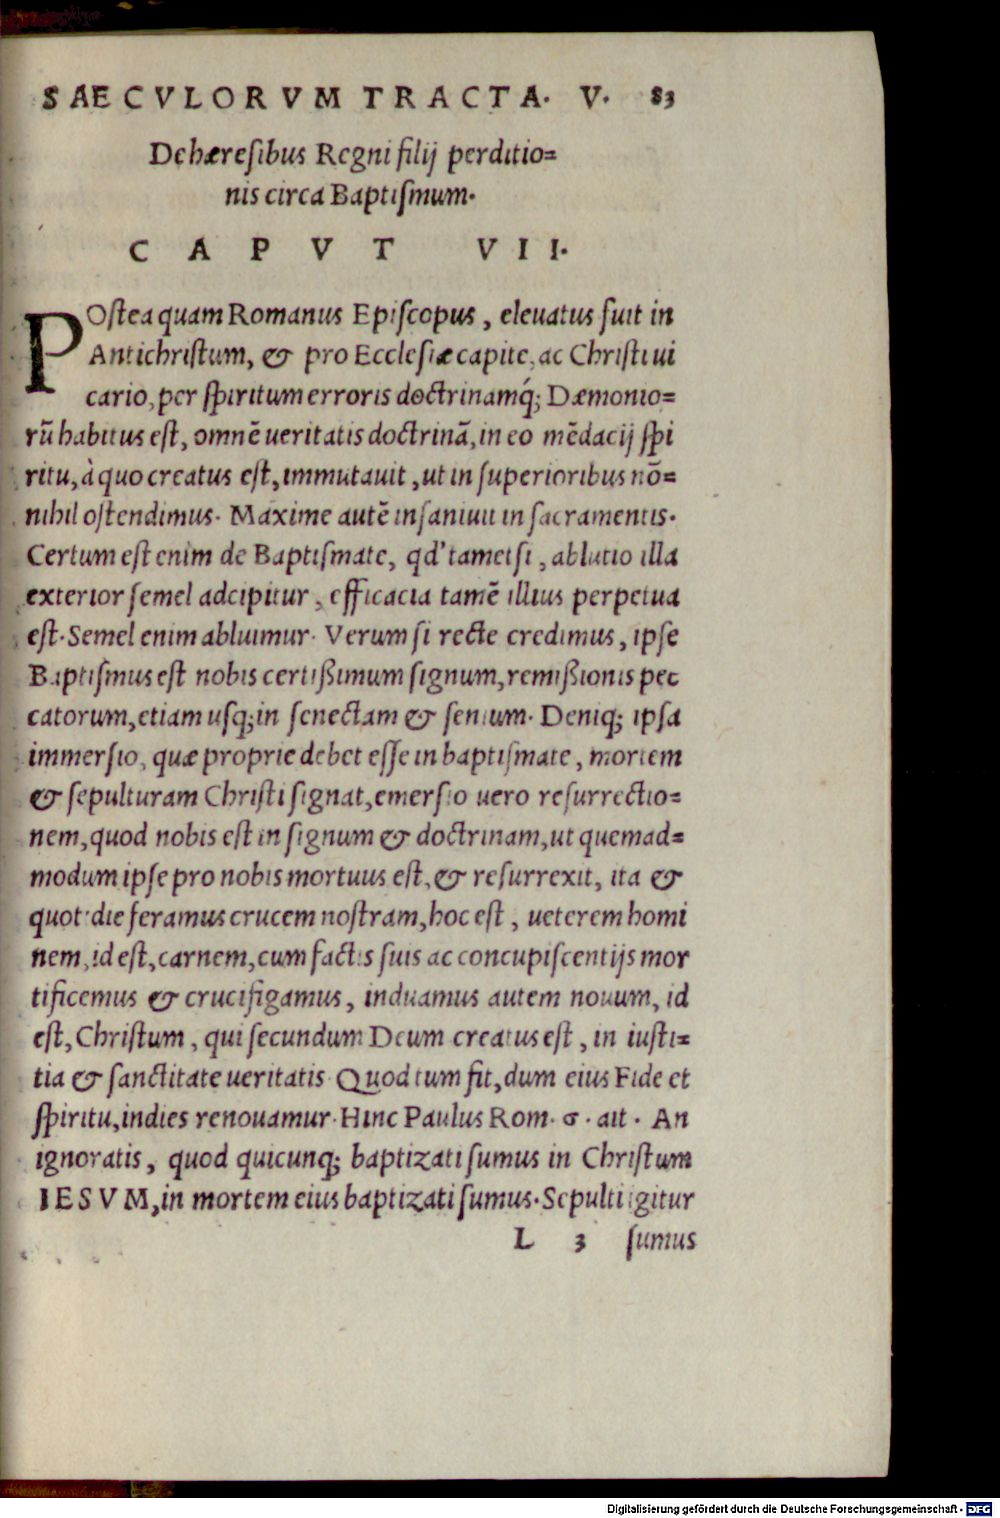 SAECVLORVM TRACTA. V. 83
De hæresibus Regni filij perditio=
nis circa Baptismum.
CAPVT VII.
POstea quam Romanus Episcopus, eleuatus fuit in
Antichristum, & pro Ecclesiæ capite, ac Christi ui
cario, per spiritum erroris doctrinamq́; Dæmonio=
rũ habitus est, omnẽ ueritatis doctrinã, in eo mẽdacij spi
ritu, à quo creatus est, immutauit, ut in superioribus nõ=
nihil ostendimus. Maxime autẽ insaniuit in sacramentis.
Certum est enim de Baptismate, qd' tametsi, ablutio illa
exterior semel adcipitur, efficacia tamẽ illius perpetua
est. Semel enim abluimur. Verum si recte credimus, ipse
Baptismus est nobis certißimum signum, remißionis pec
catorum, etiam usq; in senectam & senium. Deniq; ipsa
immersio, quæ proprie debet esse in baptismate, mortem
& sepulturam Christi signat, emersio uero resurrectio=
nem, quod nobis est in signum & doctrinam, ut quemad=
modum ipse pro nobis mortuus est, & resurrexit, ita &
quotidie feramus crucem nostram, hoc est, ueterem homi
nem, id est, carnem, cum factis suis ac concupiscentijs mor
tificemus & crucifigamus, induamus autem nouum, id
est, Christum, qui secundum Deum creatus est, in iusti=
tia & sanctitate ueritatis. Quod tum fit, dum eius Fide et
spiritu, indies renouamur. Hinc Paulus Rom. 6. ait. An
ignoratis, quod quicunq; baptizati sumus in Christum
IESVM, in mortem eius baptizati sumus. Sepulti igitur
L 3 sumus
Digitalisierung gefördert durch die Deutsche Forschungsgemeinschaft - DFG